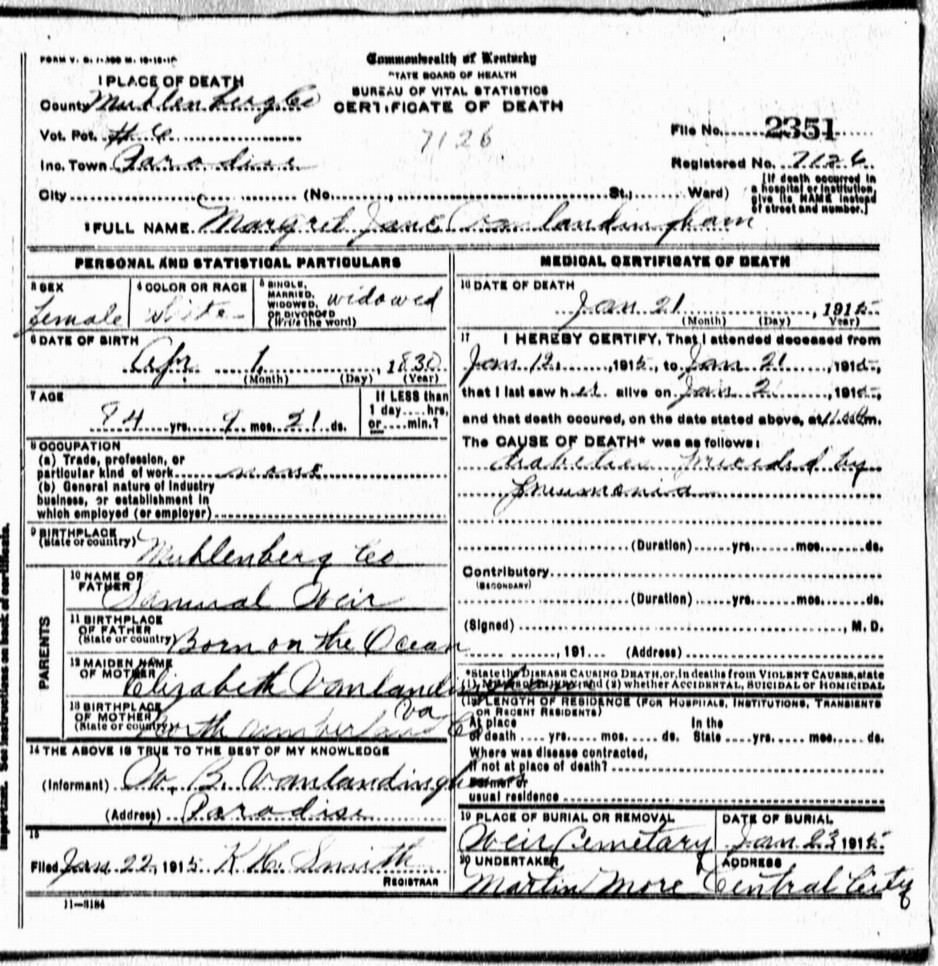 FORM V. S. 1-
Commonwealth of Kentucky
STATE BOARD OF HEALTH
BUREAU OF VITAL STATISTICS
CERTIFICATE OF DEATH
1 PLACE OF DEATH
County Muhlenberg Co
Vot. Pct. # 6
Inc. Town Paradise
City (No. St., Ward)
7126
File No. 2351
Registered No. 7126
[If death occurred in
a hospital or institution,
give its NAME instead
of street and number.]
2 FULL NAME Margret Jane Vanlandingham
PERSONAL AND STATISTICAL PARTICULARS
3 SEX
female
4 COLOR OR RACE
White
5 SINGLE,
MARRIED,
WIDOWED,
OR DIVORCED
(Write the word)
widowed
6 DATE OF BIRTH
Apr. 1, 1830
(Month) (Day) (Year)
7 AGE
84 yrs. 9 mos. 21 ds.
If LESS than
1 day hrs.
or min.?
8 OCCUPATION
(a) Trade, profession, or
particular kind of work none
(b) General nature of Industry
business, or establishment in
which employed (or employer)
9 BIRTHPLACE
(State or country) Muhlenberg Co
PARENTS
10 NAME OF
FATHER
Samual Weir
11 BIRTHPLACE
OF FATHER
(State or country) Born on the Ocean
12 MAIDEN NAME
OF MOTHER
Elizabeth Vanlandingham
13 BIRTHPLACE
OF MOTHER
(State or country)
North umberland Co Va
14 THE ABOVE IS TRUE TO THE BEST OF MY KNOWLEDGE
(Informant) B. Vanlandingham
(Address) Paradise
15
Filed Jan 22, 1915 Smith
REGISTRAR
11-3184
MEDICAL CERTIFICATE OF DEATH
16 DATE OF DEATH
Jan 21, 1915
(Month) (Day) Year)
17 I HEREBY CERTIFY, That I attended deceased from
Jan 12, 1915, to Jan 21 1915,
that I last saw her alive on Jan 2 1915,
and that death occured, on the date stated above, at m.
The CAUSE OF DEATH* was as follows:
diabeties preceded by
pneumonia
(Duration) yrs. mos. ds.
Contributory
(SECONDARY)
(Duration) yrs. mos. ds.
(Signed) , M. D.
, 191 (Address)
*State the DISEASE CAUSING DEATH, or, in deaths from VIOLENT CAUSES, state
(1) and (2) whether ACCIDENTAL, SUICIDAL or HOMICIDAL
18 LENGTH OF RESIDENCE (FOR HOSPITALS, INSTITUTIONS, TRANSIENTS
OR RECENT RESIDENTS)
At place
of death yrs. mos. ds.
In the
State yrs. mos. ds.
Where was disease contracted,
If not at place of death?
Former or
usual residence
19 PLACE OF BURIAL OR REMOVAL
Weir Cemetary
DATE OF BURIAL
Jan 23 1915
20 UNDERTAKER
Martin More
ADDRESS
Central City
Important. See instructions on back of certificate.